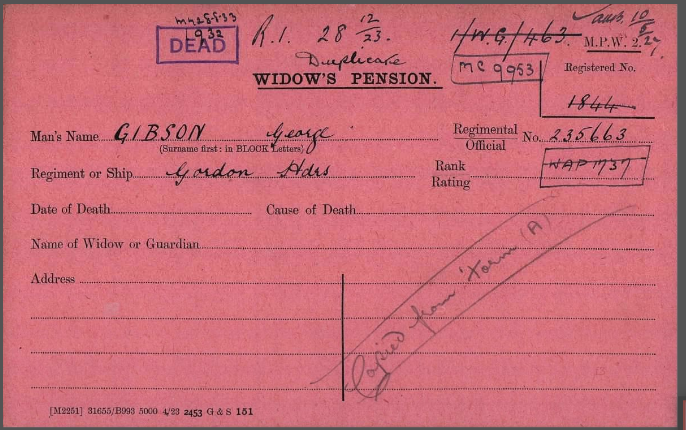 1932
DEAD
R.1. 28 12/23.
Duplicate
WIDOW'S PENSION.
1/W.G./463.
10/5/27
M.P.W. 2.
MC 9953
Registered No.
1844
Man's Name GIBSON George
(Surname first: in BLOCK Letters)
Regimental
Official No. 235663
Regiment or Ship Gordon Hdrs
Rank
Rating
WAP 1737
Date of Death Cause of Death
Name of Widow or Guardian
Address
Copied from Form (A)
13
[M2251] 31655/B993 5000 4/23 2453 G & S 151